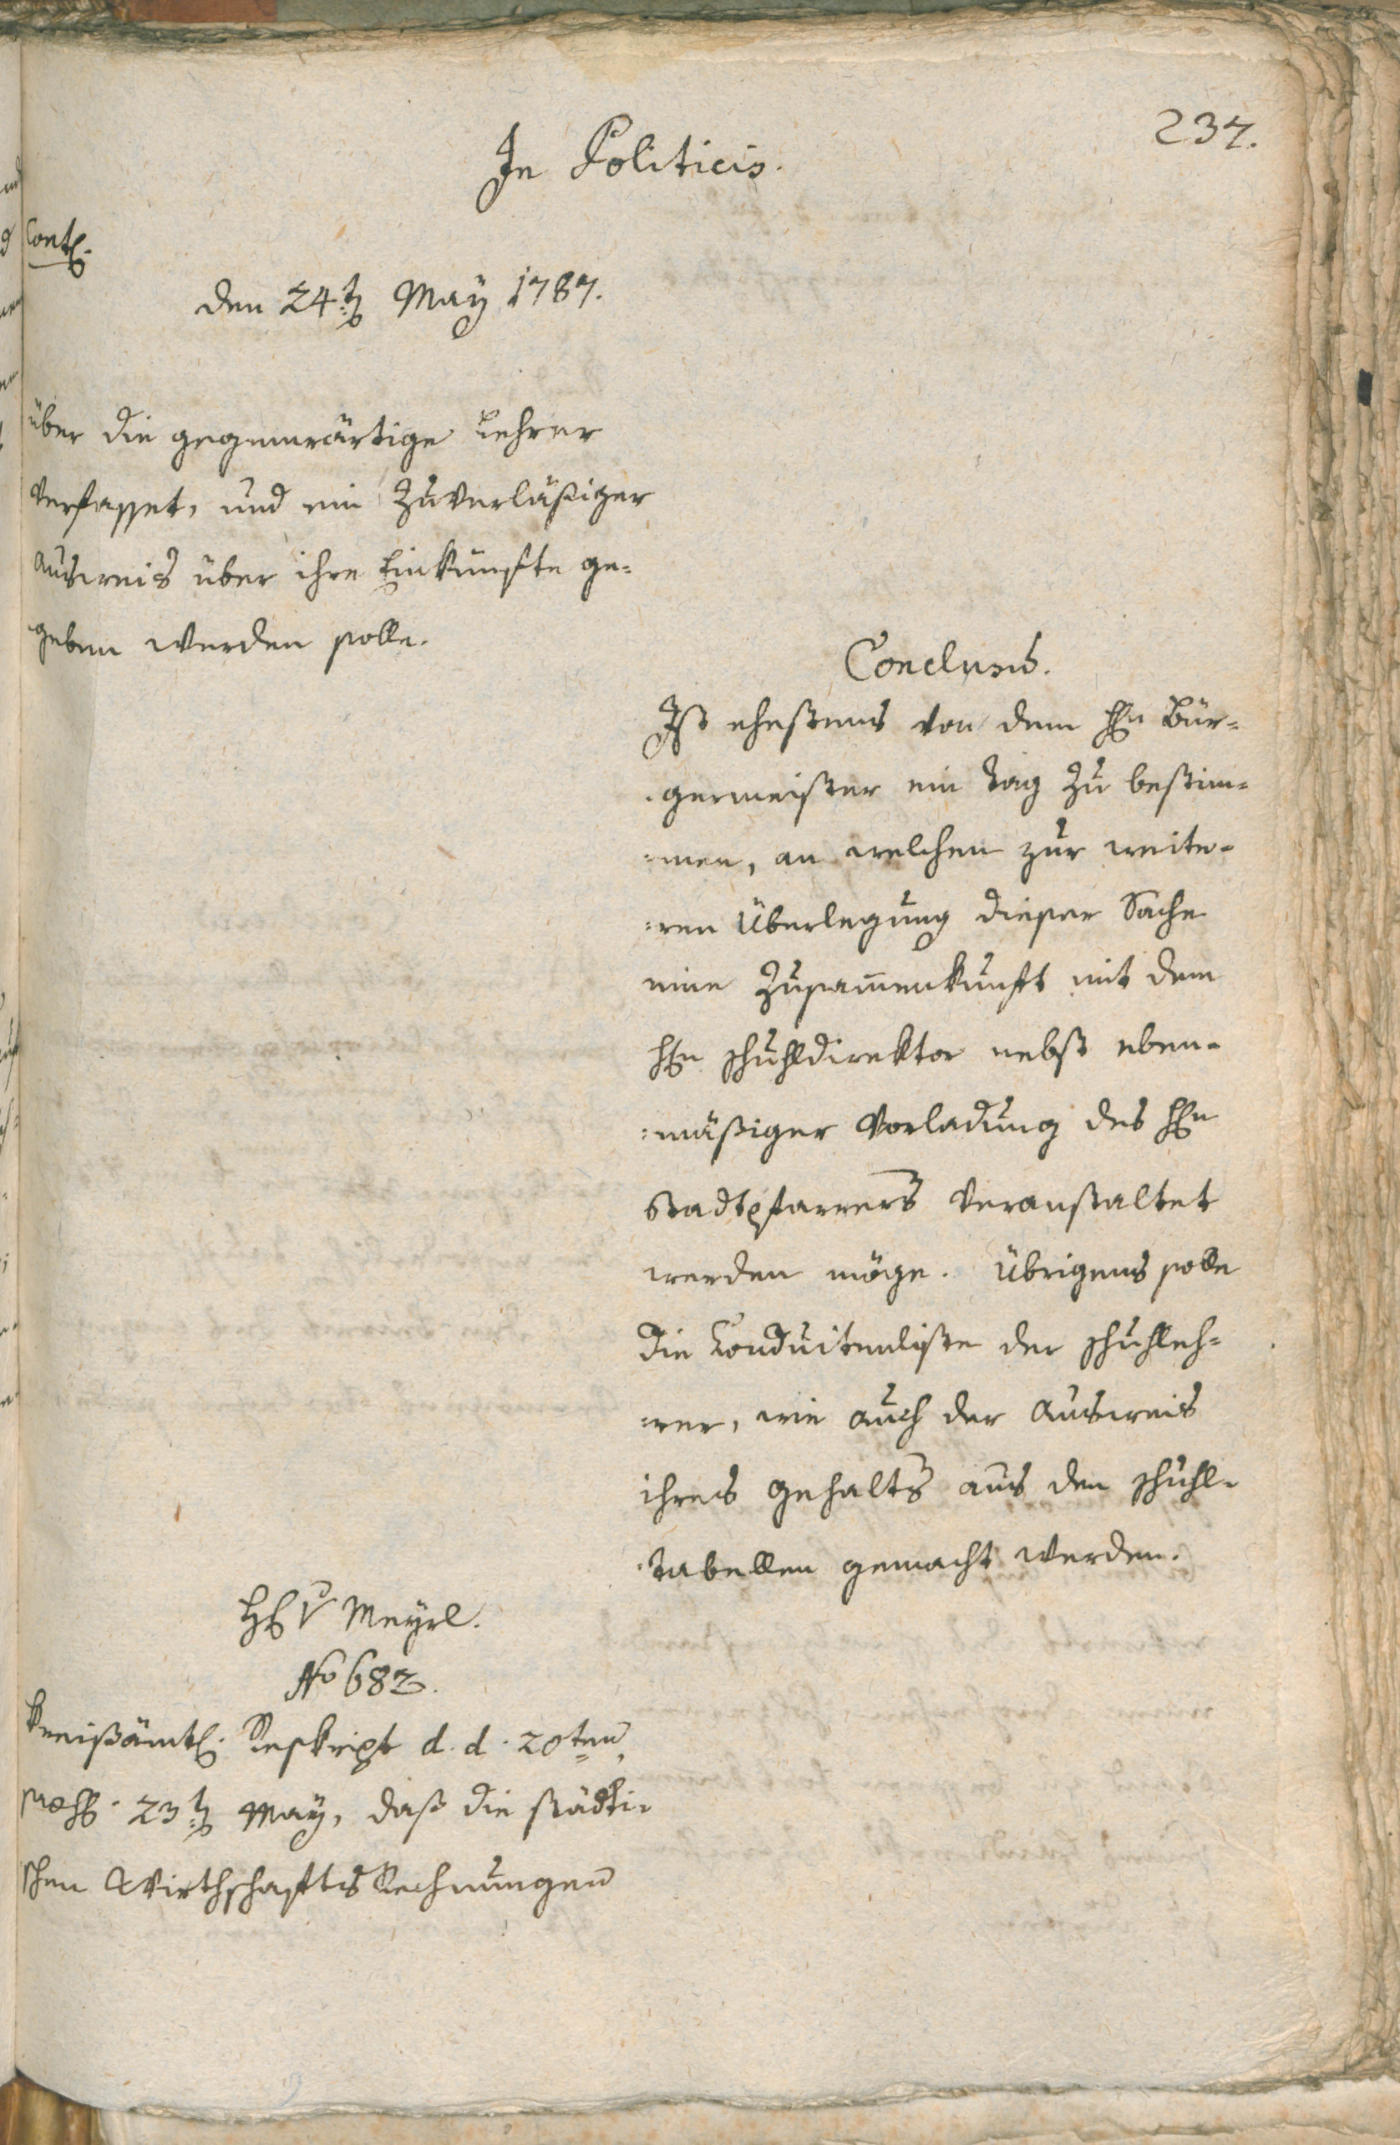 237.
In Politicis.
Cont.
den 24t May 1787.
über die gegenwärtige Lehrer
verfasset, und ein zuverläßiger
Ausweis über ihre Einkünfte ge=
geben werden solle.
Conclusum.
Ist ehestens von dem H: Bür=
germeister ein Tag zu bestim=
=men, an welchen zur weite=
=ren Überlegung dieser Sache
eine Zusam̄enkunft mit dem
H: Schuhldirektor nebst eben=
=mäßiger Vorladung des H:
Stadtpfarrers veranstaltet
werden möge. Übrigens solle
die Conduitenliste der Schuhleh=
=rer, wie auch der Ausweis
ihres Gehalts aus den Schuhl=
Tabellen gemacht werden.
H: v Meyrl.
No 682.
Kreißämtl. Reskript d. d. 20ten
praes. 23t May, daß die städti=
schen Wirthschafts Rechnungen